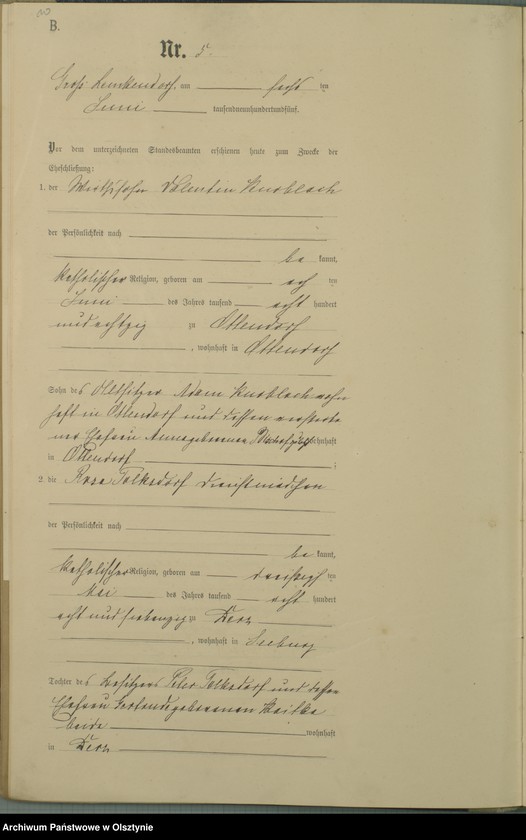 B.
Nr. 5.
Groß Lemkendorf, am sechs ten
Juni tausendneunhundertundfünf.
Vor dem unterzeichneten Standesbeamten erschienen heute zum Zwecke der
Eheschließung:
1. der Wirthssohn Valentin Knoblach
der Persönlichkeit nach
be kannt,
katholischer Religion, geboren am ten
Juni des Jahres tausend acht hundert
und achtzig zu Ottendorf
, wohnhaft in Ottendorf
Sohn des Altsitzers Adam Knoblach wohn
haft in Ottendorf und dessen verstorbe
nen Ehefrau Anna geborenen wohnhaft
in Ottendorf ;
2. die Rosa Tolksdorf Dienstmädchen
der Persönlichkeit nach
be kannt,
katholischer Religion, geboren am ten
Mai des Jahres tausend acht hundert
acht und siebenzig zu
, wohnhaft in Seeburg
Tochter des Besitzers Peter Tolksdorf und dessen
Ehefrau geborenen
beide wohnhaft
in
Archiwum Państwowe w Olsztynie